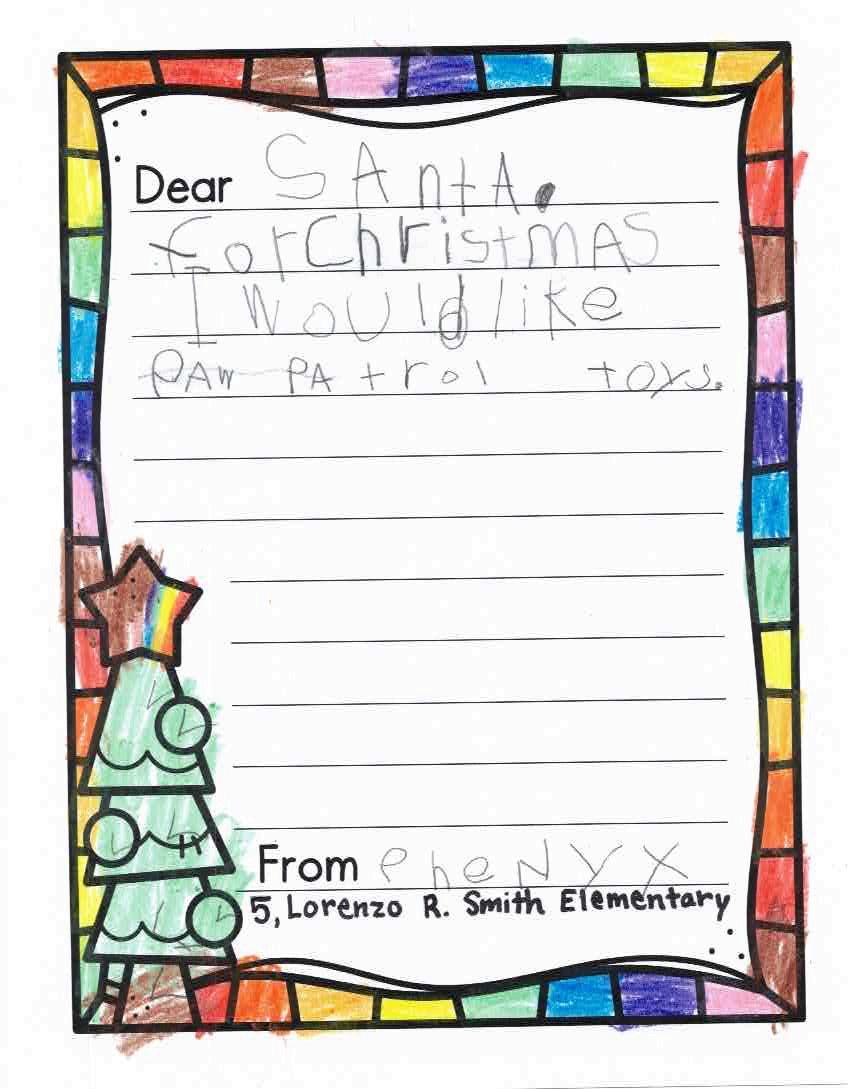 Dear SAntA.
forChristmAS
I would like
PAw PAtrol toys.
From PheNyx
5, Lorenzo R. Smith Elementary